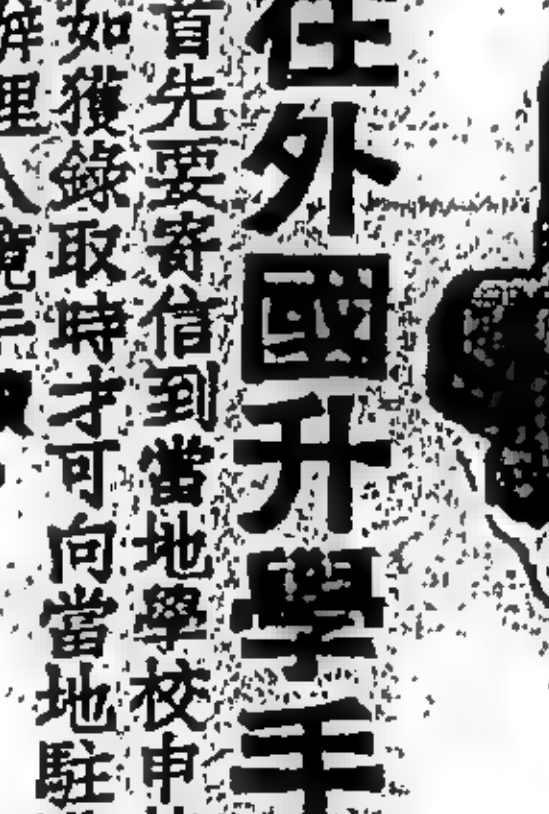 在外國升學手
首先要寄信到當地學校申
如獲錄取時才可向當地駐